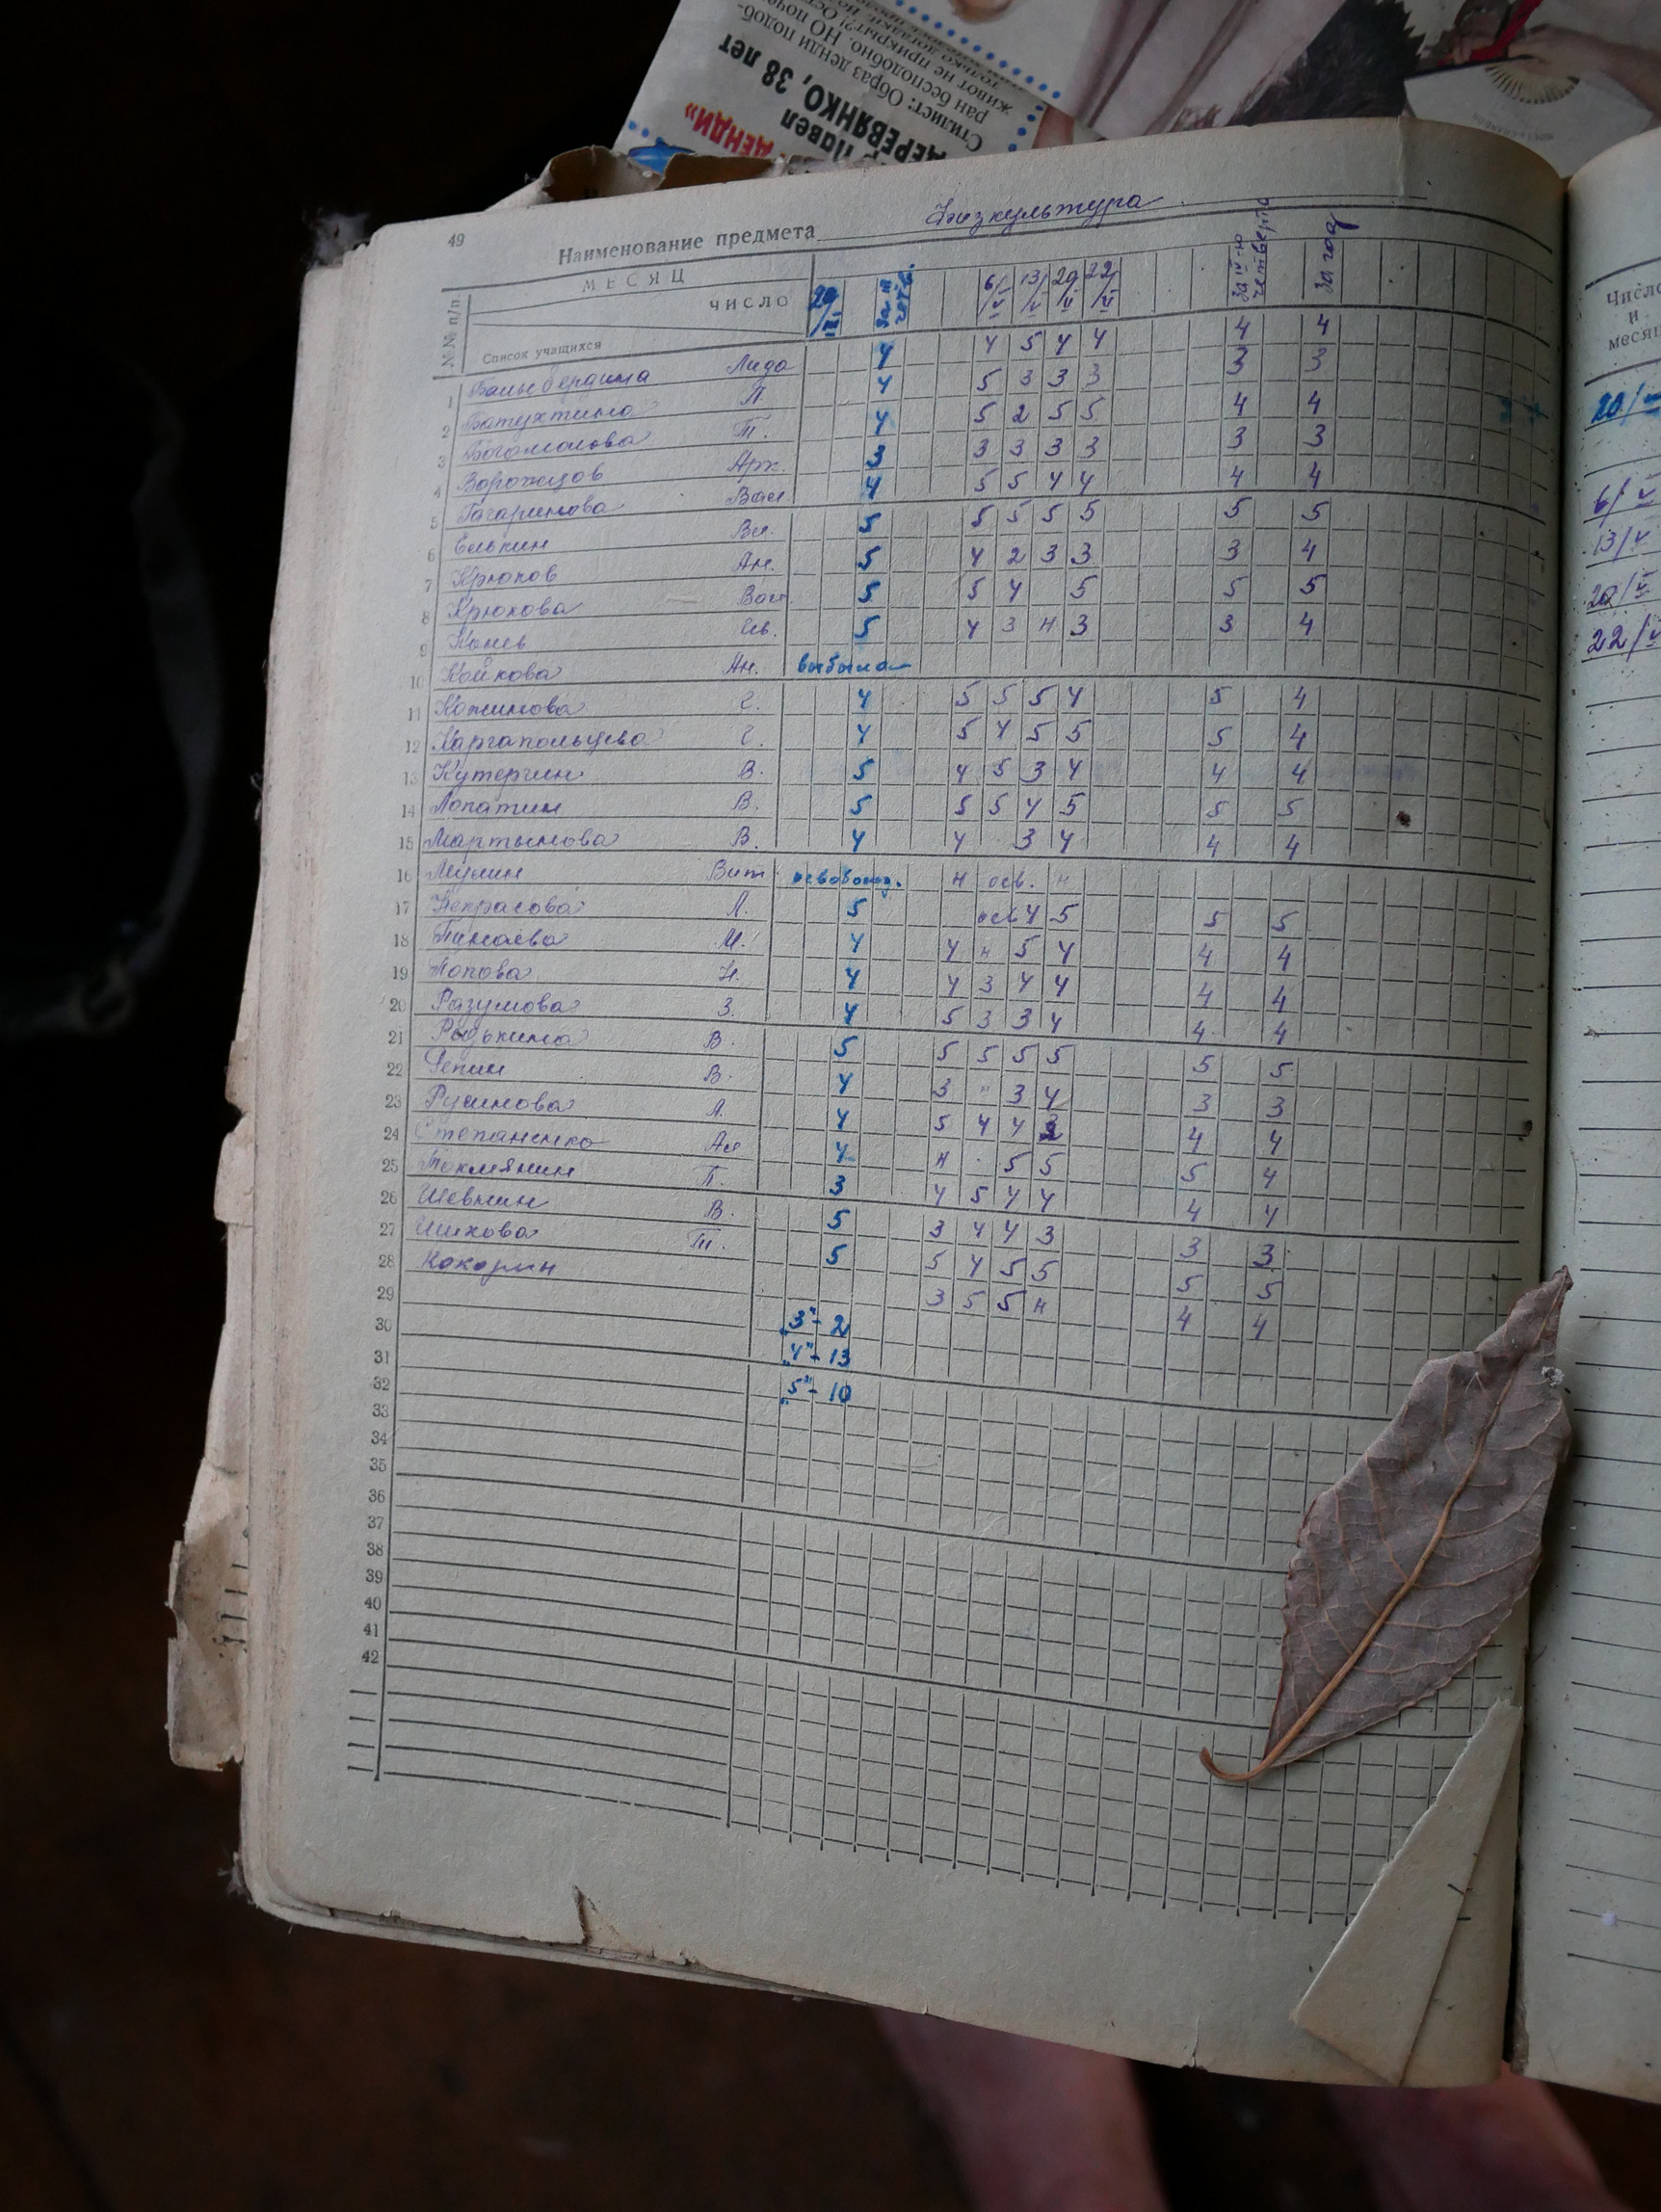 ДЕНДИ»
Павел
ДЕРЕВЯНКО, 38 лет
Стилист: Образ денди подоб-
ран бесподобно. НО поче
живот не прикрыт?! Ост
49
Наименование предмета Физкультура
МЕСЯЦ
ЧИСЛО 20/III за III четв. 6/V 13/V 20/V 22/V за IV-ю четверть за год
№№ п/п
Список учащихся
1 Лида 4 4 5 4 4 4 4
2 Батухтина П. 4 5 3 3 3 3 3
3 Богомолова Т. 4 5 2 5 5 4 4
4 Ворожцов Арк. 3 3 3 3 3 3 3
5 Гагаринова Вал 4 5 5 4 4 4 4
6 Елькин Вл. 5 5 5 5 5 5 5
7 Крюков Ан. 5 4 2 3 3 3 4
8 Крюкова Вал. 5 5 4 5 5 5
9 Конев Ив. 5 4 3 н 3 3 4
10 Койкова Ан. выбыла
11 Кожинова Г. 4 5 5 5 4 5 4
12 Каргапольцева Г. 4 5 4 5 5 5 4
13 Кутергин В. 5 4 5 3 4 4 4
14 Лопатин В. 5 5 5 4 5 5 5
15 Мартынова В. 4 4 3 4 4 4
16 Мулин Вит освобожд. н осв. н
17 Некрасова Л. 5 осв 4 5 5 5
18 Пинаева М. 4 4 н 5 4 4 4
19 Попова Н. 4 4 3 4 4 4 4
20 Разумова З. 4 5 3 3 4 4 4
21 Редькина В. 5 5 5 5 5 5 5
22 Репин В. 4 3 н 3 4 3 3
23 Русинова Л. 4 5 4 4 4 4
24 Степаненко Ал 4 н 5 5 5 4
25 П. 3 4 5 4 4 4 4
26 Шевнин В. 5 3 4 4 3 3 3
27 Шихова Т. 5 5 4 5 5 5 5
28 Кокорин 3 5 5 н 4 4
29
30 „3" - 2
31 „4" - 13
32 „5" - 10
33
34
35
36
37
38
39
40
41
42
Число
и
месяц
20/III
6/V
13/V
20/V
22/V